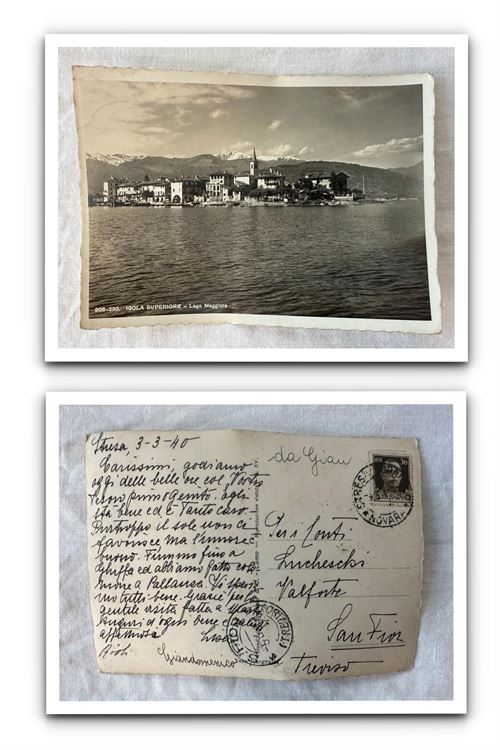 206-220. ISOLA SUPERIORE - Lago Maggiore
Stresa, 3-3-40
Carissimi, godiamo
oggi delle belle ore col Vostro
tesoro primogenito. Egli
sta bene ed è tanto caro.
Purtroppo il sole non ci
favorisce ma l'umore è
buono. Fummo fino a
Ghiffa ed abbiamo fatto
a Pallanza.
tutti bene. Grazie per la
gentile visita fatta a
Auguri d'ogni bene e saluti
affettuosi
Giandomenico
da Gian
STRESA
NOVARA
Conti
Lucheschi
Valforte
San Fior
Treviso
(TREVISO)